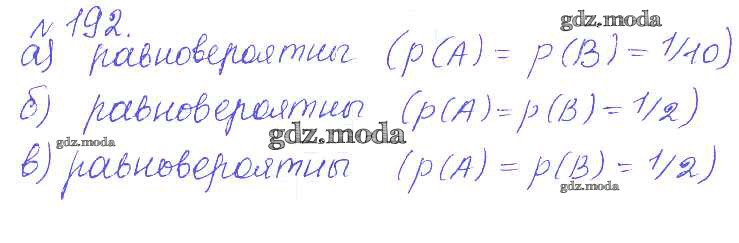 № 192. gdz.moda
а) равновероятны (p(A) = p(B) = 1/10)
б) равновероятны (p(A) = p(B) = 1/2)
gdz.moda gdz.moda
в) равновероятны (p(A) = p(B) = 1/2)
gdz.moda